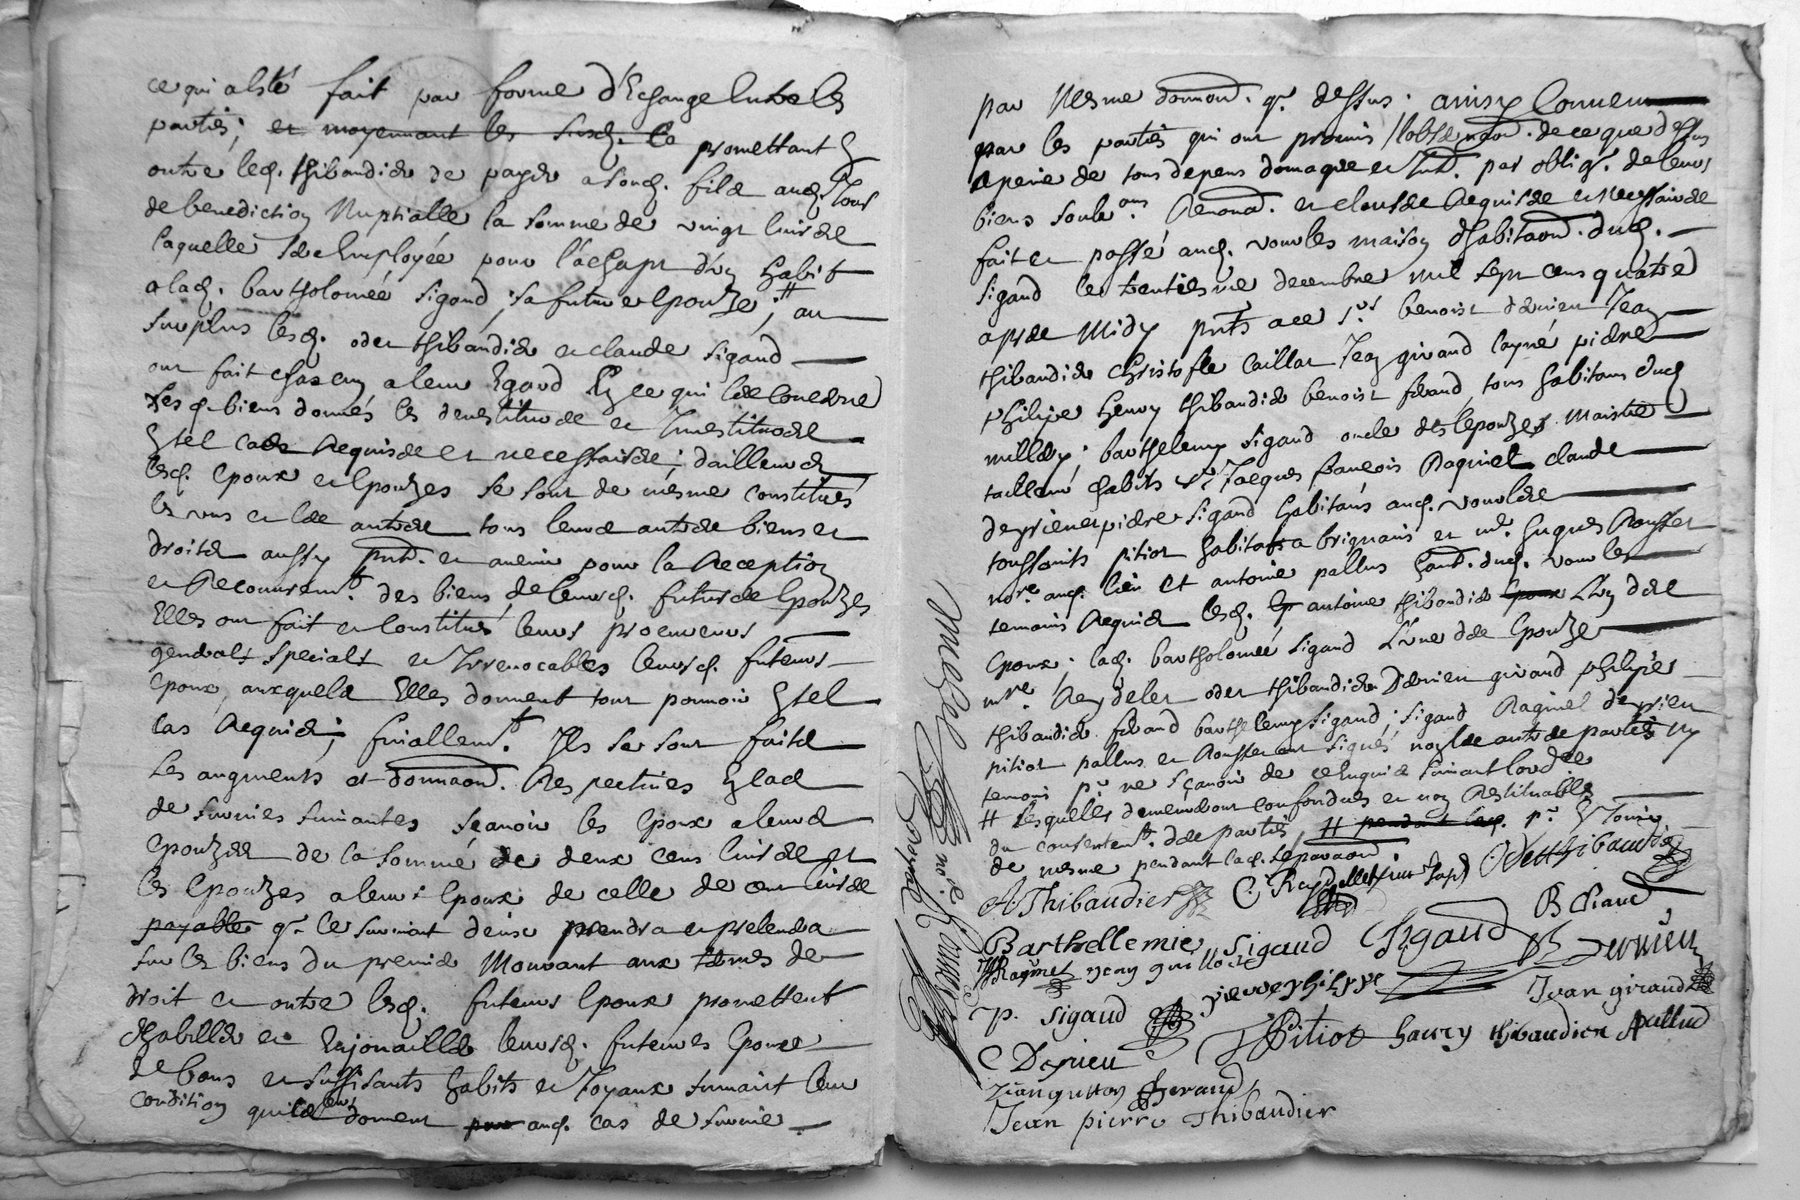 ce qui a esté fait par forme d'Echange Entre les
parties; et moyennant les susd. ce promettant En
outre led. thibaudier de payer a sond. fils aud. Jour
de benediction Nuptialle la somme de vingt livres
laquelle sera Employée pour l'achapt d'un habit
a lad. bartholomée sigaud, sa future Epouze; # au
surplus lesd. oder thibaudier et claude sigaud
ont fait chascun a leur Egard En ce qui les Concerne
Lesd. biens donnés les devestitures et Investitures
En tel cas Requises et necessaires; d'ailleurs
lesd. Epoux et Epouzes se sont de mesme constitués
les uns et les autres tous leurs autres biens et
droits aussy pnts. et avenir pour la Reception
et Recouvremt. des biens desleursd. futures Epouzes
Elles ont fait et Constitué leurs procureurs
generals specials et Irrevocables leursd. futeurs
Epoux, auxquels Elles donnent tout pouvoir En tel
cas Requis; finallemt. Ils se sont faits
Les augments et donnaons. Respectives En cas
de survies suivantes sçavoir les Epoux a leurs
Epouzes de la somme de deux cens livres et
les Epouzes a leurs Epoux de celle de cent livres
payables q. le survivant d'eux prendra et prelevera
sur les biens du premier Mourant aux termes de
droit et outre lesd. futeurs Epoux promettent
d'habiller et Enjouailler leursd. futeures Epouzes
de bons et suffisants habits et Joyaux suivant leur
condition qu'ils leur donnent pour aud. cas de survie
par Mesme donnaon. q. dessus. ainsy Convenu
par les parties qui ont promis l'observaon. de ce que dessus
a peine de tous depens domages et Int. par oblig. de leurs
biens soub.ons Renonc. et clauses Requises et necessaires
fait et passé aud. vourles maison d'habitaon. dud.
sigaud le trentiesme decembre mil sept cens quatre
apres Midy pnts. avec srs. benoist dervieu Jean
thibaudier Christofle Caillat Jean giraud layné pierre
philipe henry thibaudier benoist feraud tous habitans dud.
millery; barthelemy sigaud oncle des Epouzes Maistre
tailleur d'habits sr. Jacques françois Raginel claude
deyrieu et pierre sigaud habitans aud. vourles
toussaints pitiot habitant a brignais et me. hugues Rousset
nore. aud. lieu Et antoine pallus dud. vourles
temoins Requis lesd. Ep antoine thibaudier Epoux L'un des
Epoux. lad. bartholomée sigaud L'une des Epouze
mre. Reydelet oder thibaudier Dervieu giraud philipe
thibaudier feraud barthelemy sigaud; sigaud Raginel deyrieu
pitiot pallus et Rousset ont signés non les autres parties ny
temoins pr. ne sçavoir de ce Enquis suivant l'ordre
# Lesquelles demeureront confondues et non Restituables
du consentemt. des parties # pendant lad. pr. & Jouir
de mesme pendant lad. separaon
A. Thibaudier C. Reydellet O. Thibaudier
B feraud
Barthellemie Sigaud Sigaud B. Dervieu
Raginel Jean guillot pierre philippe Jean giraud
P. Sigaud TPitiot henry thibaudier A Pallud
C Deyrieu
Jean pierre Thibaudier